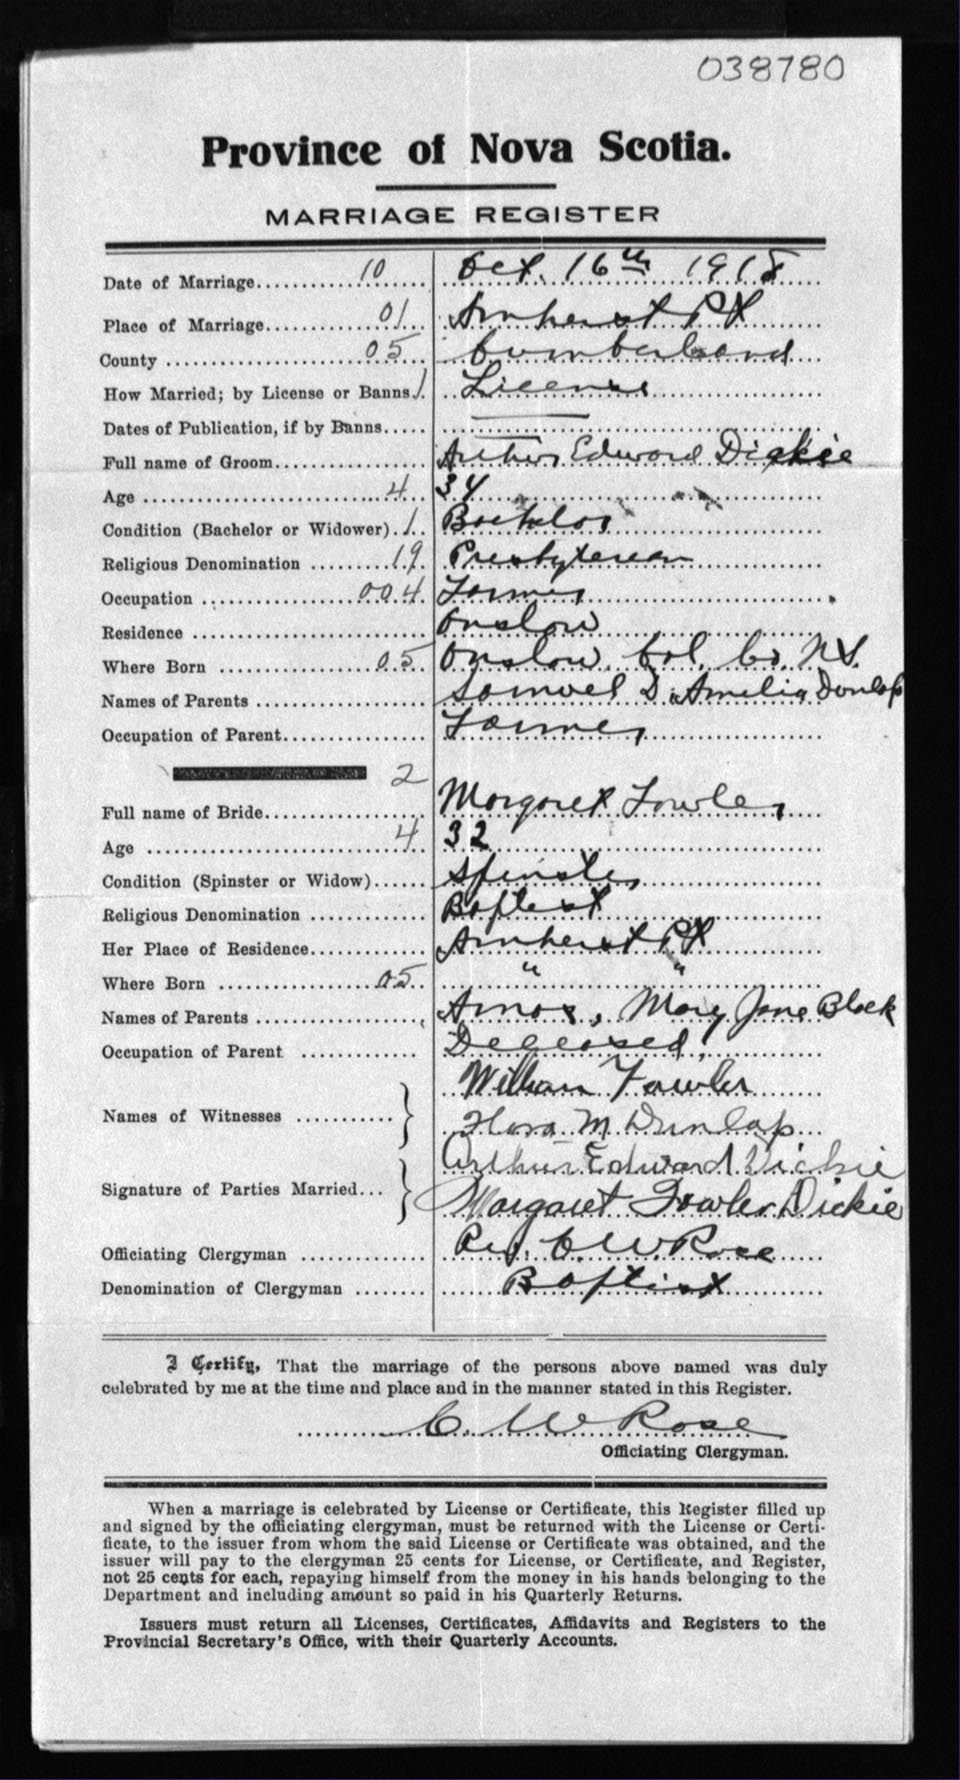 038780
Province of Nova Scotia.
MARRIAGE REGISTER
Date of Marriage 10 Oct. 16th 1918
Place of Marriage 01 Amherst Pt
County 05 Cumberland
How Married; by License or Banns 1 License
Dates of Publication, if by Banns
Full name of Groom Arthur Edward Dickie
Age 4 34
Condition (Bachelor or Widower) 1 Bachelor
Religious Denomination 19 Presbyterian
Occupation 004 Farmer
Residence Onslow
Where Born 05 Onslow, Col. Co. N.S.
Names of Parents Samuel D. Amelia Dunlap
Occupation of Parent Farmer
2
Full name of Bride Margaret Fowler
Age 4 32
Condition (Spinster or Widow) Spinster
Religious Denomination Baptist
Her Place of Residence Amherst Pt
Where Born 05 " "
Names of Parents Amos, Mary Jane Black
Occupation of Parent Deceased
William Fowler
Names of Witnesses
Flora M Dunlap
Arthur Edward Dickie
Signature of Parties Married
Margaret Fowler Dickie
Officiating Clergyman Rev. C. W. Rose
Denomination of Clergyman Baptist
I Certify, That the marriage of the persons above named was duly
celebrated by me at the time and place and in the manner stated in this Register.
C. W Rose
Officiating Clergyman.
When a marriage is celebrated by License or Certificate, this Register filled up
and signed by the officiating clergyman, must be returned with the License or Certi-
ficate, to the issuer from whom the said License or Certificate was obtained, and the
issuer will pay to the clergyman 25 cents for License, or Certificate, and Register,
not 25 cents for each, repaying himself from the money in his hands belonging to the
Department and including amount so paid in his Quarterly Returns.
Issuers must return all Licenses, Certificates, Affidavits and Registers to the
Provincial Secretary's Office, with their Quarterly Accounts.